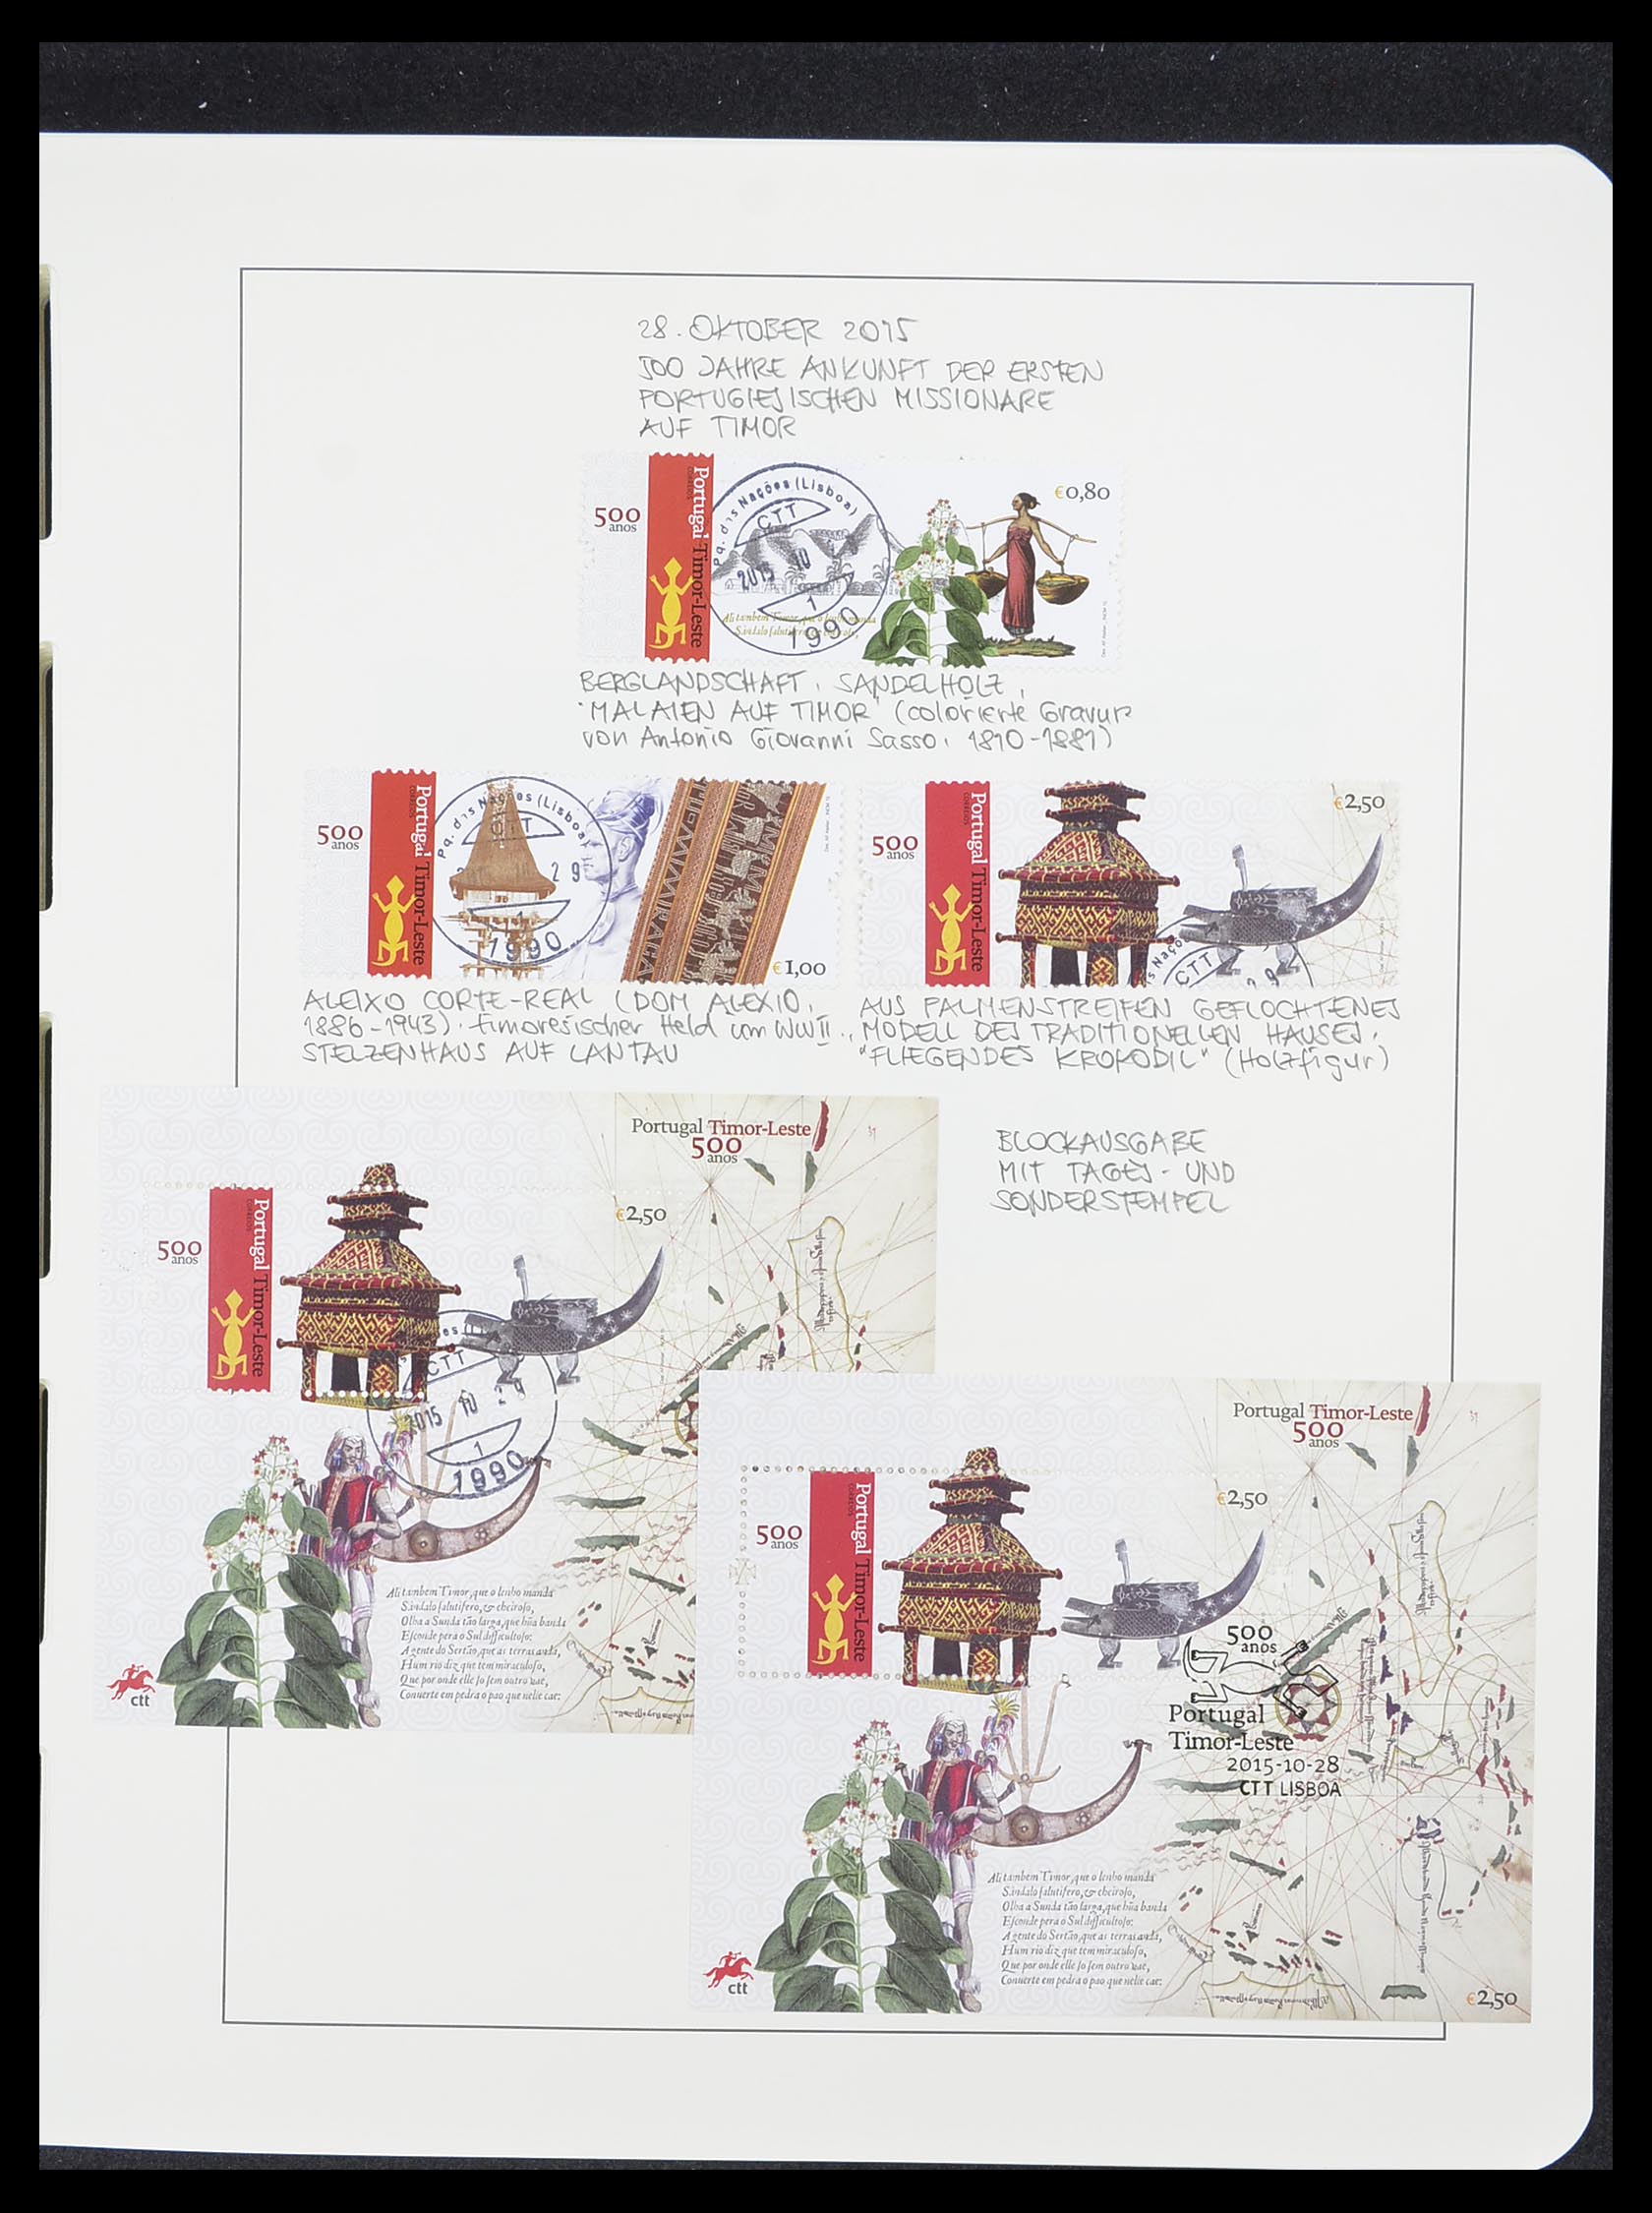 28. OKTOBER 2015
500 JAHRE ANKUNFT DER ERSTEN
PORTUGIESISCHEN MISSIONARE
AUF TIMOR
500
anos
Portugal Timor-Leste
CORREIOS
Pq. das Nações (Lisboa)
CTT
2015 10
1
1990
€0,80
Ali tambem Timor, que o lenho manda
Sandalo salutifero, & cheiroso,
BERGLANDSCHAFT, SANDELHOLZ,
"MALAIEN AUF TIMOR" (colorierte Gravur
von Antonio Giovanni Sasso, 1810-1881)
500
anos
Portugal Timor-Leste
CORREIOS
Pq. das Nações (Lisboa)
CTT
29
1
1990
€1,00
500
anos
Portugal Timor-Leste
CORREIOS
€2,50
s Naçõ
CTT
29
ALEIXO CORTE-REAL (DOM ALEXIO,
1886-1943), timoresischer Held um WW II.,
STELZENHAUS AUF LANTAU
AUS PALMENSTREIFEN GEFLOCHTENES
MODELL DES TRADITIONELLEN HAUSES,
"FLIEGENDES KROKODIL" (Holzfigur)
BLOCKAUSGABE
MIT TAGES- UND
SONDERSTEMPEL
Portugal Timor-Leste
500
anos
€2,50
500
anos
Portugal Timor-Leste
CORREIOS
es
CTT
2015 10 29
1
1990
Ali tambem Timor, que o lenho manda
Sandalo salutifero, & cheiroso,
Olha a Sunda tão larga, que hũa banda
Esconde pera o Sul difficultoso:
A gente do Sertão, que as terras anda,
Hum rio diz que tem miraculoso,
Que por onde elle so sem outro vae,
Converte em pedra o pao que nelle cae:
ctt
Portugal Timor-Leste
500
anos
€2,50
500
anos
Portugal Timor-Leste
CORREIOS
500
anos
Portugal
Timor-Leste
2015-10-28
CTT LISBOA
Ali tambem Timor, que o lenho manda
Sandalo salutifero, & cheiroso,
Olha a Sunda tão larga, que hũa banda
Esconde pera o Sul difficultoso:
A gente do Sertão, que as terras anda,
Hum rio diz que tem miraculoso,
Que por onde elle so sem outro vae,
Converte em pedra o pao que nelle cae:
ctt
€2,50